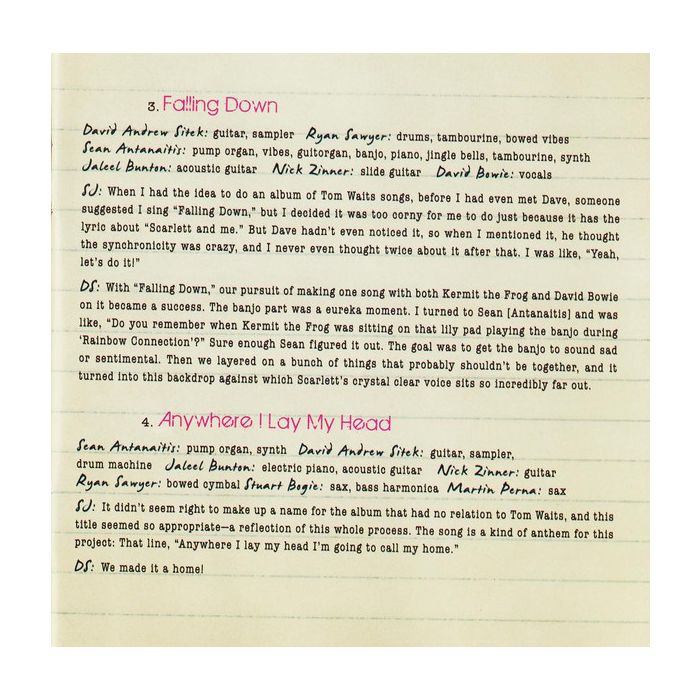 3. Falling Down
David Andrew Sitek: guitar, sampler Ryan Sawyer: drums, tambourine, bowed vibes
Sean Antanaitis: pump organ, vibes, guitorgan, banjo, piano, jingle bells, tambourine, synth
Jaleel Bunton: acoustic guitar Nick Zinner: slide guitar David Bowie: vocals
SJ: When I had the idea to do an album of Tom Waits songs, before I had even met Dave, someone
suggested I sing “Falling Down,” but I decided it was too corny for me to do just because it has the
lyric about “Scarlett and me.” But Dave hadn't even noticed it, so when I mentioned it, he thought
the synchronicity was crazy, and I never even thought twice about it after that. I was like, “Yeah,
let's do it!”
DS: With “Falling Down,” our pursuit of making one song with both Kermit the Frog and David Bowie
on it became a success. The banjo part was a eureka moment. I turned to Sean [Antanaitis] and was
like, “Do you remember when Kermit the Frog was sitting on that lily pad playing the banjo during
‘Rainbow Connection’?” Sure enough Sean figured it out. The goal was to get the banjo to sound sad
or sentimental. Then we layered on a bunch of things that probably shouldn't be together, and it
turned into this backdrop against which Scarlett's crystal clear voice sits so incredibly far out.
4. Anywhere I Lay My Head
Sean Antanaitis: pump organ, synth David Andrew Sitek: guitar, sampler,
drum machine Jaleel Bunton: electric piano, acoustic guitar Nick Zinner: guitar
Ryan Sawyer: bowed cymbal Stuart Bogie: sax, bass harmonica Martin Perna: sax
SJ: It didn't seem right to make up a name for the album that had no relation to Tom Waits, and this
title seemed so appropriate—a reflection of this whole process. The song is a kind of anthem for this
project: That line, “Anywhere I lay my head I'm going to call my home.”
DS: We made it a home!